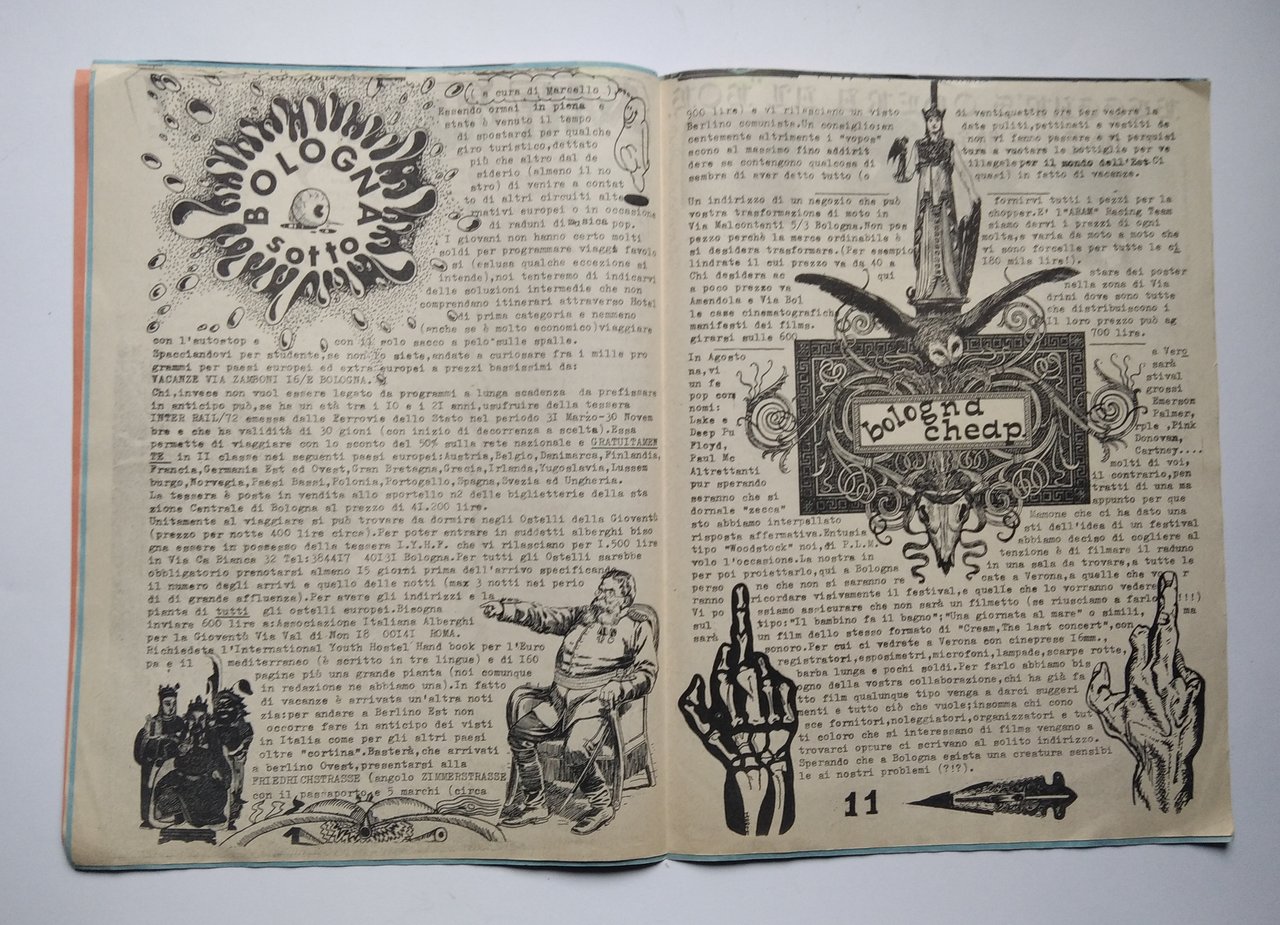 BOLOGNA
sotto
( a cura di Marcello )
Essendo ormai in piena e
state è venuto il tempo
di spostarci per qualche
giro turistico,dettato
più che altro dal de
siderio (almeno il no
stro) di venire a contat
to di altri circuiti alte
rnativi europei o in occasione
di raduni di musica pop.
I giovani non hanno certo molti
soldi per programmare viaggi favolo
si (esluse qualche eccezione si
intende),noi tenteremo di indicarvi
delle soluzioni intermedie che non
comprendano itinerari attraverso Hotel
di prima categoria e nemmeno
(anche se è molto economico)viaggiare
con l'autostop e con il solo sacco a pelo sulle spalle.
Spacciandovi per studente,se non lo siete,andate a curiosare fra i mille pro
grammi per paesi europei ed extra europei a prezzi bassissimi da:
VACANZE VIA ZAMBONI I6/E BOLOGNA.
Chi,invece non vuol essere legato da programmi a lunga scadenza da prefissare
in anticipo può,se ha un età tra i IO e i 2I anni,usufruire della tessera
INTER RAIL/72 emessa dalle Ferrovie dello Stato nel periodo 3I Marzo-30 Novem
bre e che ha validità di 30 gioni (con inizio di decorrenza a scelta).Essa
permette di viaggiare con lo sconto del 50% sulla rete nazionale e GRATUITAMEN
TE in II classe nei seguenti paesi europei:Austria,Belgio,Danimarca,Finlandia,
Francia,Germania Est ed Ovest,Gran Bretagna,Grecia,Irlanda,Yugoslavia,Lussem
burgo,Norvegia,Paesi Bassi,Polonia,Portogallo,Spagna,Svezia ed Ungheria.
La tessera è posta in vendita allo sportello n2 delle biglietterie della sta
zione Centrale di Bologna al prezzo di 4I.200 lire.
Unitamente al viaggiare si può trovare da dormire negli Ostelli della Gioventù
(prezzo per notte 400 lire circa).Per poter entrare in suddetti alberghi biso
gna essere in possesso della tessera I.Y.H.F. che vi rilasciano per I.500 lire
in Via Ca Bianca 32 Tel:3844I7 40I3I Bologna.Per tutti gli Ostelli sarebbe
obbligatorio prenotarsi almeno I5 giorni prima dell'arrivo specificando
il numero degli arrivi e quello delle notti (max 3 notti nei perio
di di grande affluenza).Per avere gli indirizzi e la
pianta di tutti gli ostelli europei.Bisogna
inviare 600 lire a:Associazione Italiana Alberghi
per la Gioventù Via Val di Non I8 00I4I ROMA.
Richiedete l'International Youth Hostel Hand book per l'Euro
pa e il mediterraneo (è scritto in tre lingue) e di I60
pagine più una grande pianta (noi comunque
in redazione ne abbiamo una).In fatto
di vacanze è arrivata un'altra noti
zia:per andare a Berlino Est non
occorre fare in anticipo dei visti
in Italia come per gli altri paesi
oltre "cortina".Basterà,che arrivati
a berlino Ovest,presentarsi alla
FRIEDRICHSTRASSE (angolo ZIMMERSTRASSE
con il passaporto e 5 marchi (circa
900 lire) e vi rilasciano un visto di ventiquattro ore per vedere la
Berlino comunista.Un consiglio:an date puliti,pettinati e vestiti de
centemente altrimenti i "vopos" non vi fanno passare e vi perquisi
scono al massimo fino addirit tura a vuotare le bottiglie per ve
dere se contengono qualcosa di illegale per il mondo dell'Est Ci
sembra di aver detto tutto (o quasi) in fatto di vacanze.
Un indirizzo di un negozio che può fornirvi tutti i pezzi per la
vostra trasformazione di moto in chopper.E' l'"ARAM" Racing Team
Via Malcontenti 5/3 Bologna.Non pos siamo darvi i prezzi di ogni
pezzo perchè la merce ordinabile è molta,e varia da moto a moto che
si desidera trasformare.(Per esempio vi sono forcelle per tutte le ci
lindrate il cui prezzo va da 40 a I80 mila lire!).
Chi desidera ac qui stare dei poster
a poco prezzo va nella zona di Via
Amendola e Via Bol drini dove sono tutte
le case cinematografiche che distribuiscono i
manifesti dei films. Il loro prezzo può ag
girarsi sulle 600 700 lire.
In Agosto a Vero
na,vi sarà
un fe stival
pop con grossi
nomi: Emerson
Lake e Palmer,
Deep Pu rple ,Pink
Floyd, Donovan,
Paul Mc Cartney....
Altrettanti molti di voi,
pur sperando il contrario,pen
seranno che si tratti di una ma
dornale "zecca" appunto per que
sto abbiamo interpellato Mamone che ci ha dato una
risposta affermativa.Entusia sti dell'idea di un festival
tipo "Woodstock" noi,di F.L.M. abbiamo deciso di cogliere al
volo l'occasione.La nostra in tenzione è di filmare il raduno
per poi proiettarlo,qui a Bologna in una sala da trovare,a tutte le
perso ne che non si saranno re cate a Verona,a quelle che vo r
ranno ricordare visivamente il festival,e quelle che lo vorranno vedere
Vi po ssiamo assicurare che non sarà un filmetto (se riusciamo a farlo !!!)
sul tipo:"Il bambino fa il bagno";"Una giornata al mare" o simili, ma
sarà un film dello stesso formato di "Cream,The last concert",con
sonoro.Per cui ci vedrete a Verona con cineprese I6mm.,
registratori,esposimetri,microfoni,lampade,scarpe rotte,
barba lunga e pochi soldi.Per farlo abbiamo bis
ogno della vostra collaborazione,chi ha già fa
tto film qualunque tipo venga a darci suggeri
menti e tutto ciò che vuole;insomma chi cono
sce fornitori,noleggiatori,organizzatori e tut
ti coloro che si interessano di films vengano a
trovarci oppure ci scrivano al solito indirizzo.
Sperando che a Bologna esista una creatura sensibi
le ai nostri problemi (?!?).
bologna
cheap
11